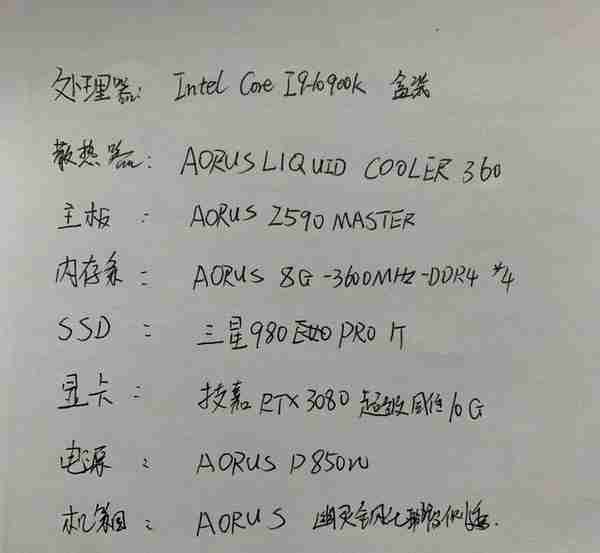 处理器: Intel Core I9-10900k 盒装
散热器: AORUS LIQUID COOLER 360
主板: AORUS Z590 MASTER
内存条: AORUS 8G-3600MHz-DDR4 *4
SSD: 三星980 PRO 1T
显卡: 技嘉 RTX 3080 超级雕 10G
电源: AORUS P850W
机箱: AORUS 钢化 侧透.